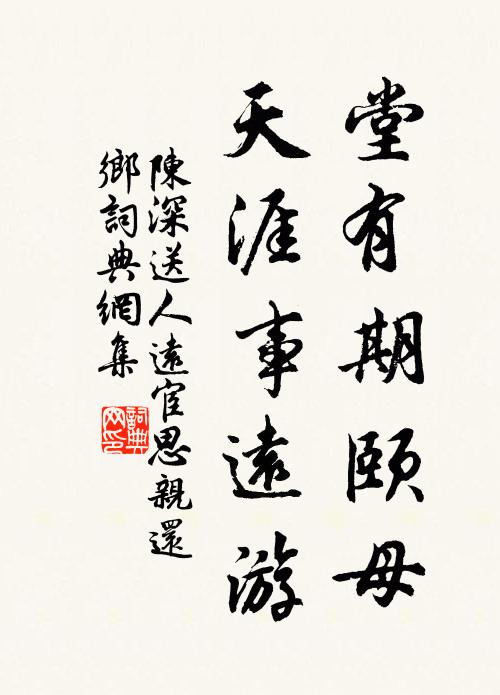 堂有期頤母
天涯事遠游
陳深送人遠宦思親還
鄉詞典網集
詞典
网印